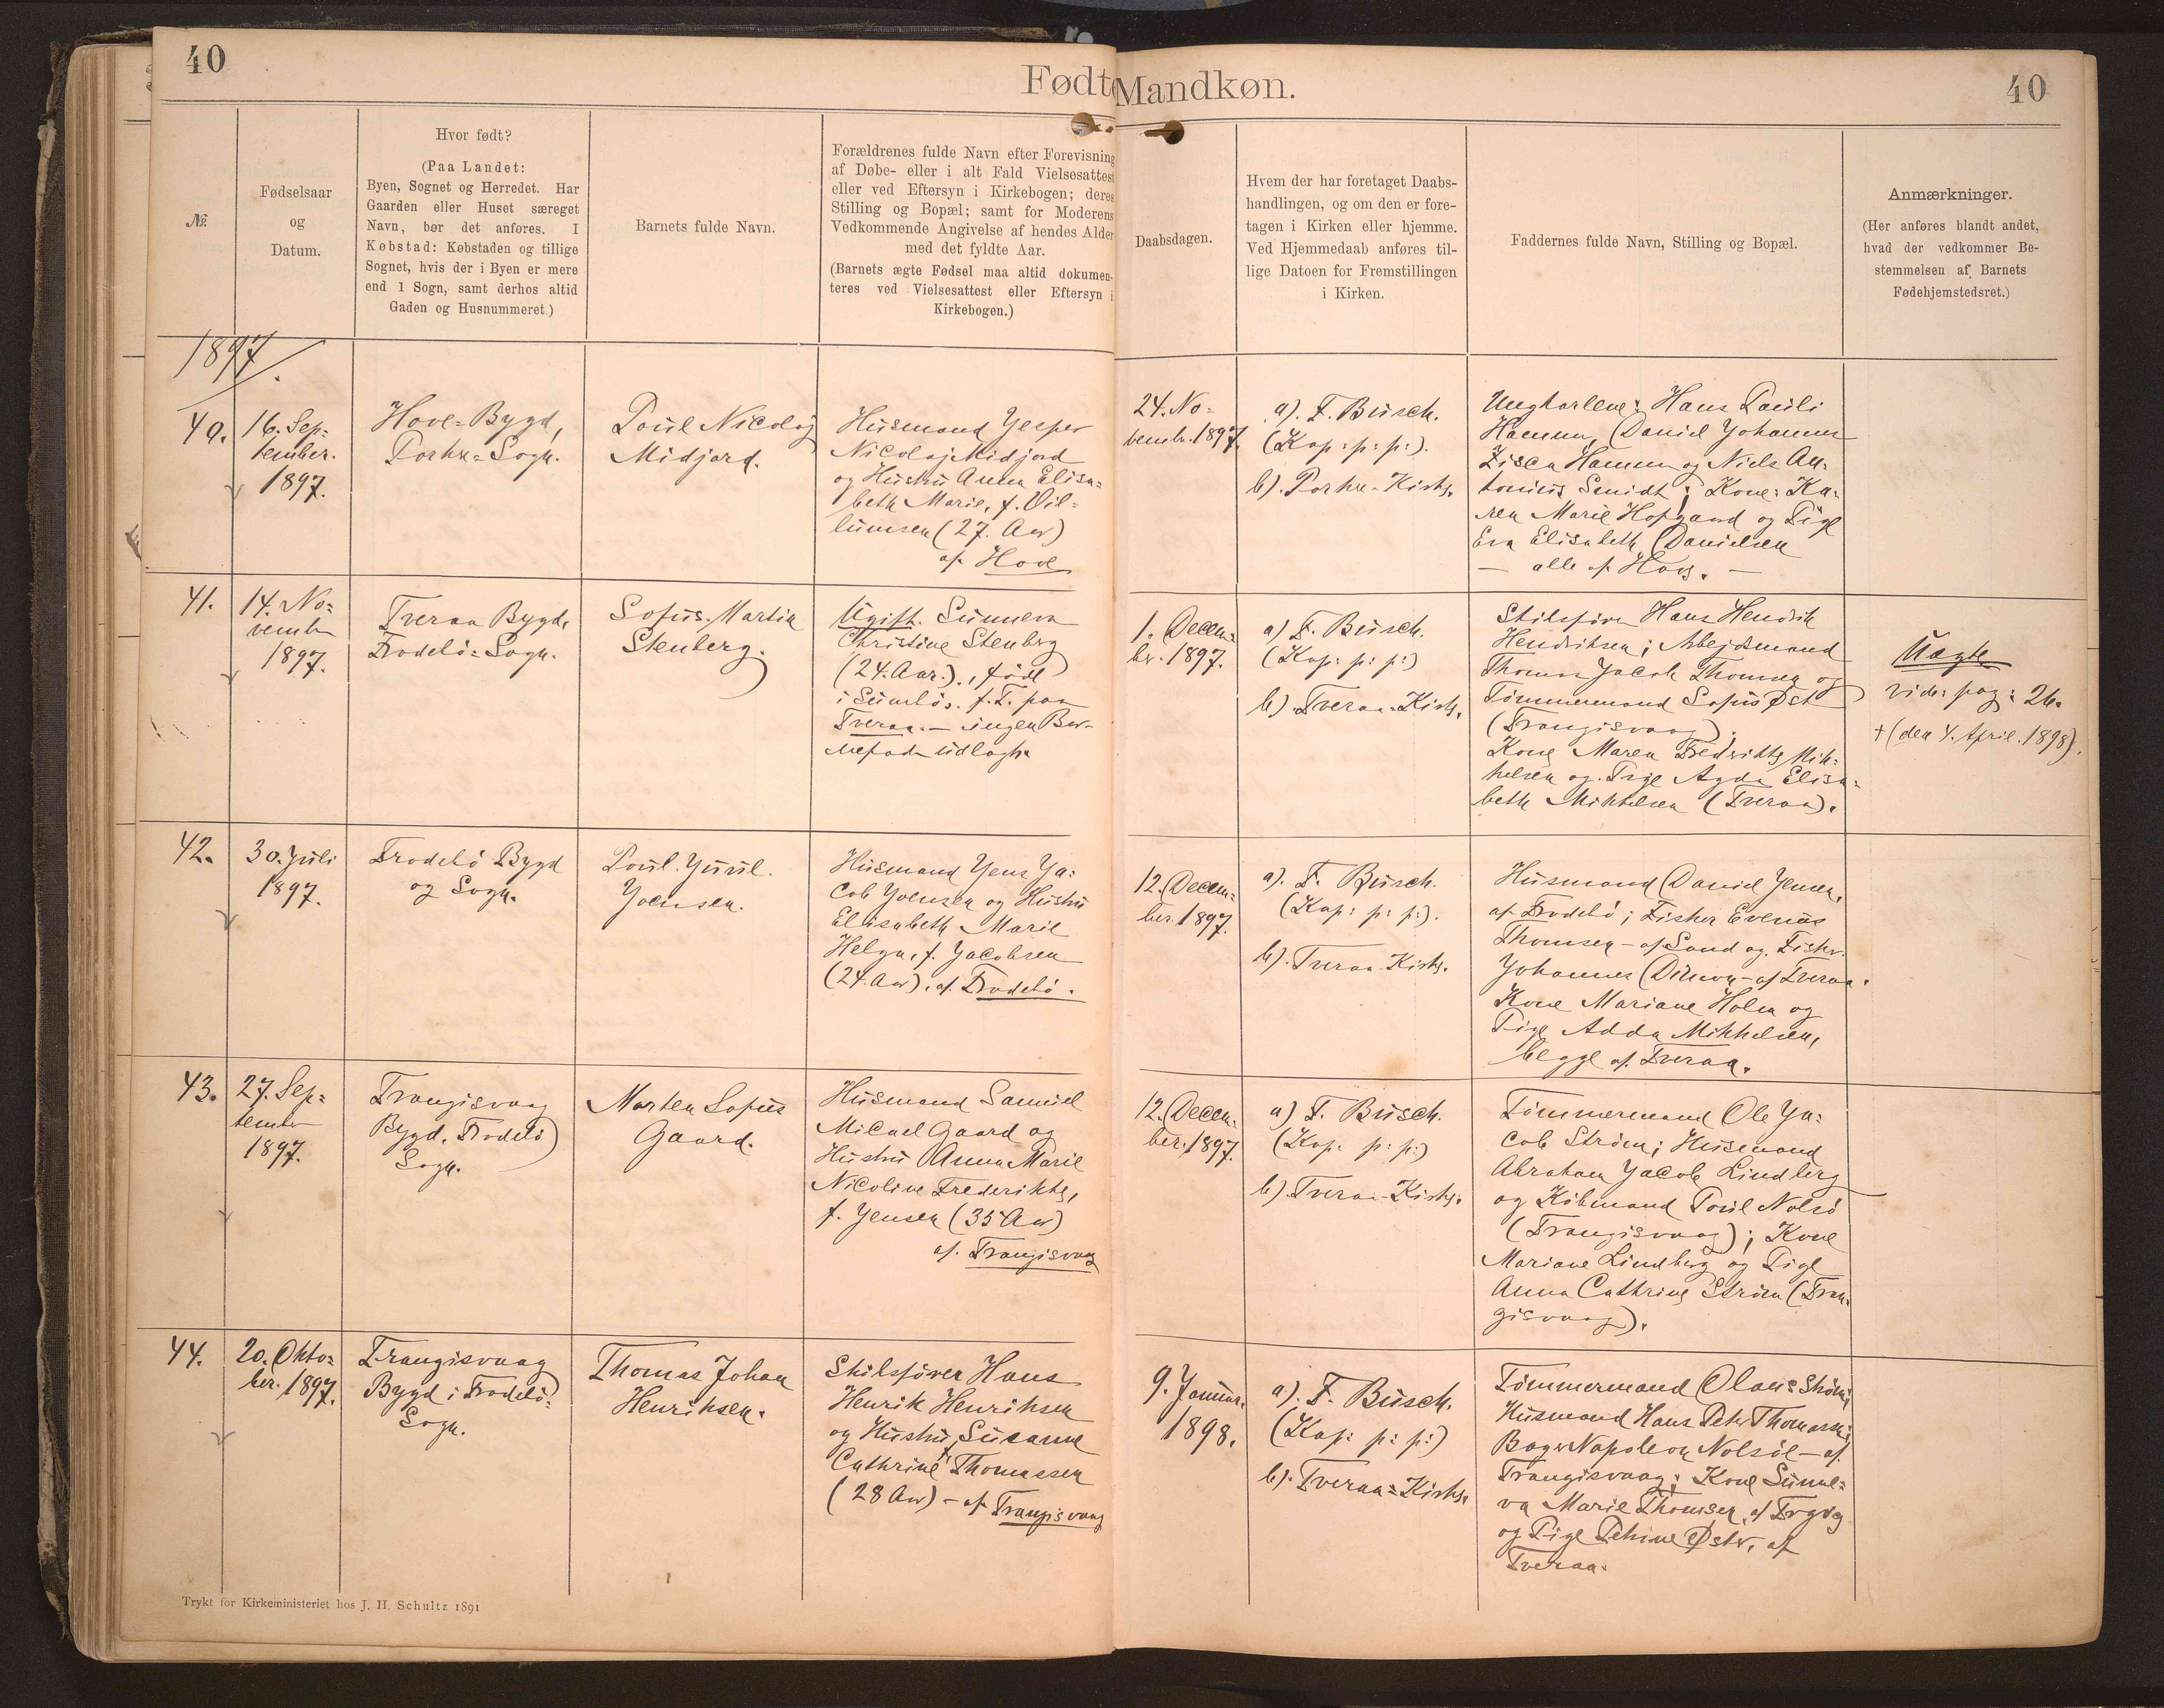 40
Fødte
Mandkøn.
40
№
Fødselsaar
og
Datum.
Hvor født?
(Paa Landet:
Byen, Sognet og Herredet. Har
Gaarden eller Huset særeget
Navn, bør det anføres. I
Købstad: Købstaden og tillige
Sognet, hvis der i Byen er mere
end 1 Sogn, samt derhos altid
Gaden og Husnummeret.)
Barnets fulde Navn.
Forældrenes fulde Navn efter Forevisning
af Døbe- eller i alt Fald Vielsesattest
eller ved Eftersyn i Kirkebogen; deres
Stilling og Bopæl; samt for Moderens
Vedkommende Angivelse af hendes Alder
med det fyldte Aar.
(Barnets ægte Fødsel maa altid dokumen-
teres ved Vielsesattest eller Eftersyn i
Kirkebogen.)
Daabsdagen.
Hvem der har foretaget Daabs-
handlingen, og om den er fore-
tagen i Kirken eller hjemme.
Ved Hjemmedaab anføres til-
lige Datoen for Fremstillingen
i Kirken.
Faddernes fulde Navn, Stilling og Bopæl.
Anmærkninger.
(Her anføres blandt andet,
hvad der vedkommer Be-
stemmelsen af Barnets
Fødehjemstedsret.)
1897.
40.
16. Sep=
tember.
1897.
Hove=Bygd,
Porkr=Sogn.
Poul Nicolaj
Midjord.
Husmand Jesper
Nicolaj Midjord
og Hustru Anna Elisa=
beth Marie, f. Vil=
lumsen (27. Aar)
af Hove
24. No=
vembr. 1897.
a). F. Busch.
(Kap: p: p:).
b). Porkr-Kirke.
Ungkarlene: Hans Pauli
Hammer, Daniel Johannes
Hammer og Niels An=
tonius Smidt; Kone: Ka=
ren Marie Hofgaard og Pige
Eva Elisabeth Danielsen
— alle af Hove. —
41.
14. No=
vember
1897.
Tveraa Bygd,
Frodebö=Sogn.
Sofus. Martin
Stenberg.
Ugift. Sunneva
Christine Stenberg
(24. Aar)., född
i Sumbö, f. T. paa
Tveraa. — ingen Bar-
nefader udlagt.
1. Decem=
br. 1897.
a) F. Busch.
(Kap: p: p:)
b). Tveraa-Kirke.
Skibsförer Hans Hendrik
Hendriksen; Arbejdsmand
Thomas Jacob Thomsen og
Tömmermand Sofus Øst
(Trangisvaag);
Kone Maren Fredrikke Mik=
kelsen og Pige Agda Elisa=
beth Mikkelsen (Tveraa).
Uægte
vide: pag: 26.
+ (den 4. April. 1898).
42.
30. Juli
1897.
Frodebö Bygd
og Sogn.
Poul. Juul.
Joensen.
Husmand Jens Ja=
cob Joensen og Hustru
Elisabeth Marie
Helga, f. Jacobsen
(24. Aar). af. Frodebö.
12. Decem=
ber. 1897.
a). F. Busch.
(Kap: p: p:).
b). Tveraa-Kirke.
Husmand Daniel Jensen,
af Frodebö; Fisker Evenus
Thomsen — af Sand og Fisker
Johannes — af Tveraa.
Kone Mariane Holm og
Pige Adda Mikkelsen,
begge af. Tveraa.
43.
27. Sep=
tember
1897.
Trangisvaag
Bygd. Frodebö
Sogn.
Morten Sofus
Gaard.
Husmand Samuel
Micael Gaard og
Hustru Anna Marie
Nicoline Frederikke,
f. Jensen (35 Aar)
af. Trangisvaag
12. Decem=
ber. 1897.
a) F. Busch.
(Kap. p: p:)
b). Tveraa-Kirke.
Tömmermand Ole Ja=
cob Ström; Husmand
Abraham Jacob Lindberg
og Köbmand Poul Nolsö
(Trangisvaag); Kone
Mariane Lindberg og Pige
Anna Cathrine Ström (Tran=
gisvaag).
44.
20. Okto=
ber. 1897.
Trangisvaag
Bygd i Frodebö=
Sogn.
Thomas Johan
Henriksen.
Skibsförer Hans
Henrik Henriksen
og Hustru Susanne
Cathrine f. Thomassen
(28 Aar) — af Trangisvaag
9. Januar.
1898.
a). F. Busch.
(Kap: p: p:)
b). Tveraa=Kirke.
Tömmermand Olaus Ström,
Husmand Hans Peter Thomassen,
Bager Napoleon Nolsöe — af
Trangisvaag; Kone Sunne=
va Marie Thomsen, af Trgvg
og Pige Petrine Øster, af
Tveraa.
Trykt for Kirkeministeriet hos J. H. Schultz 1891